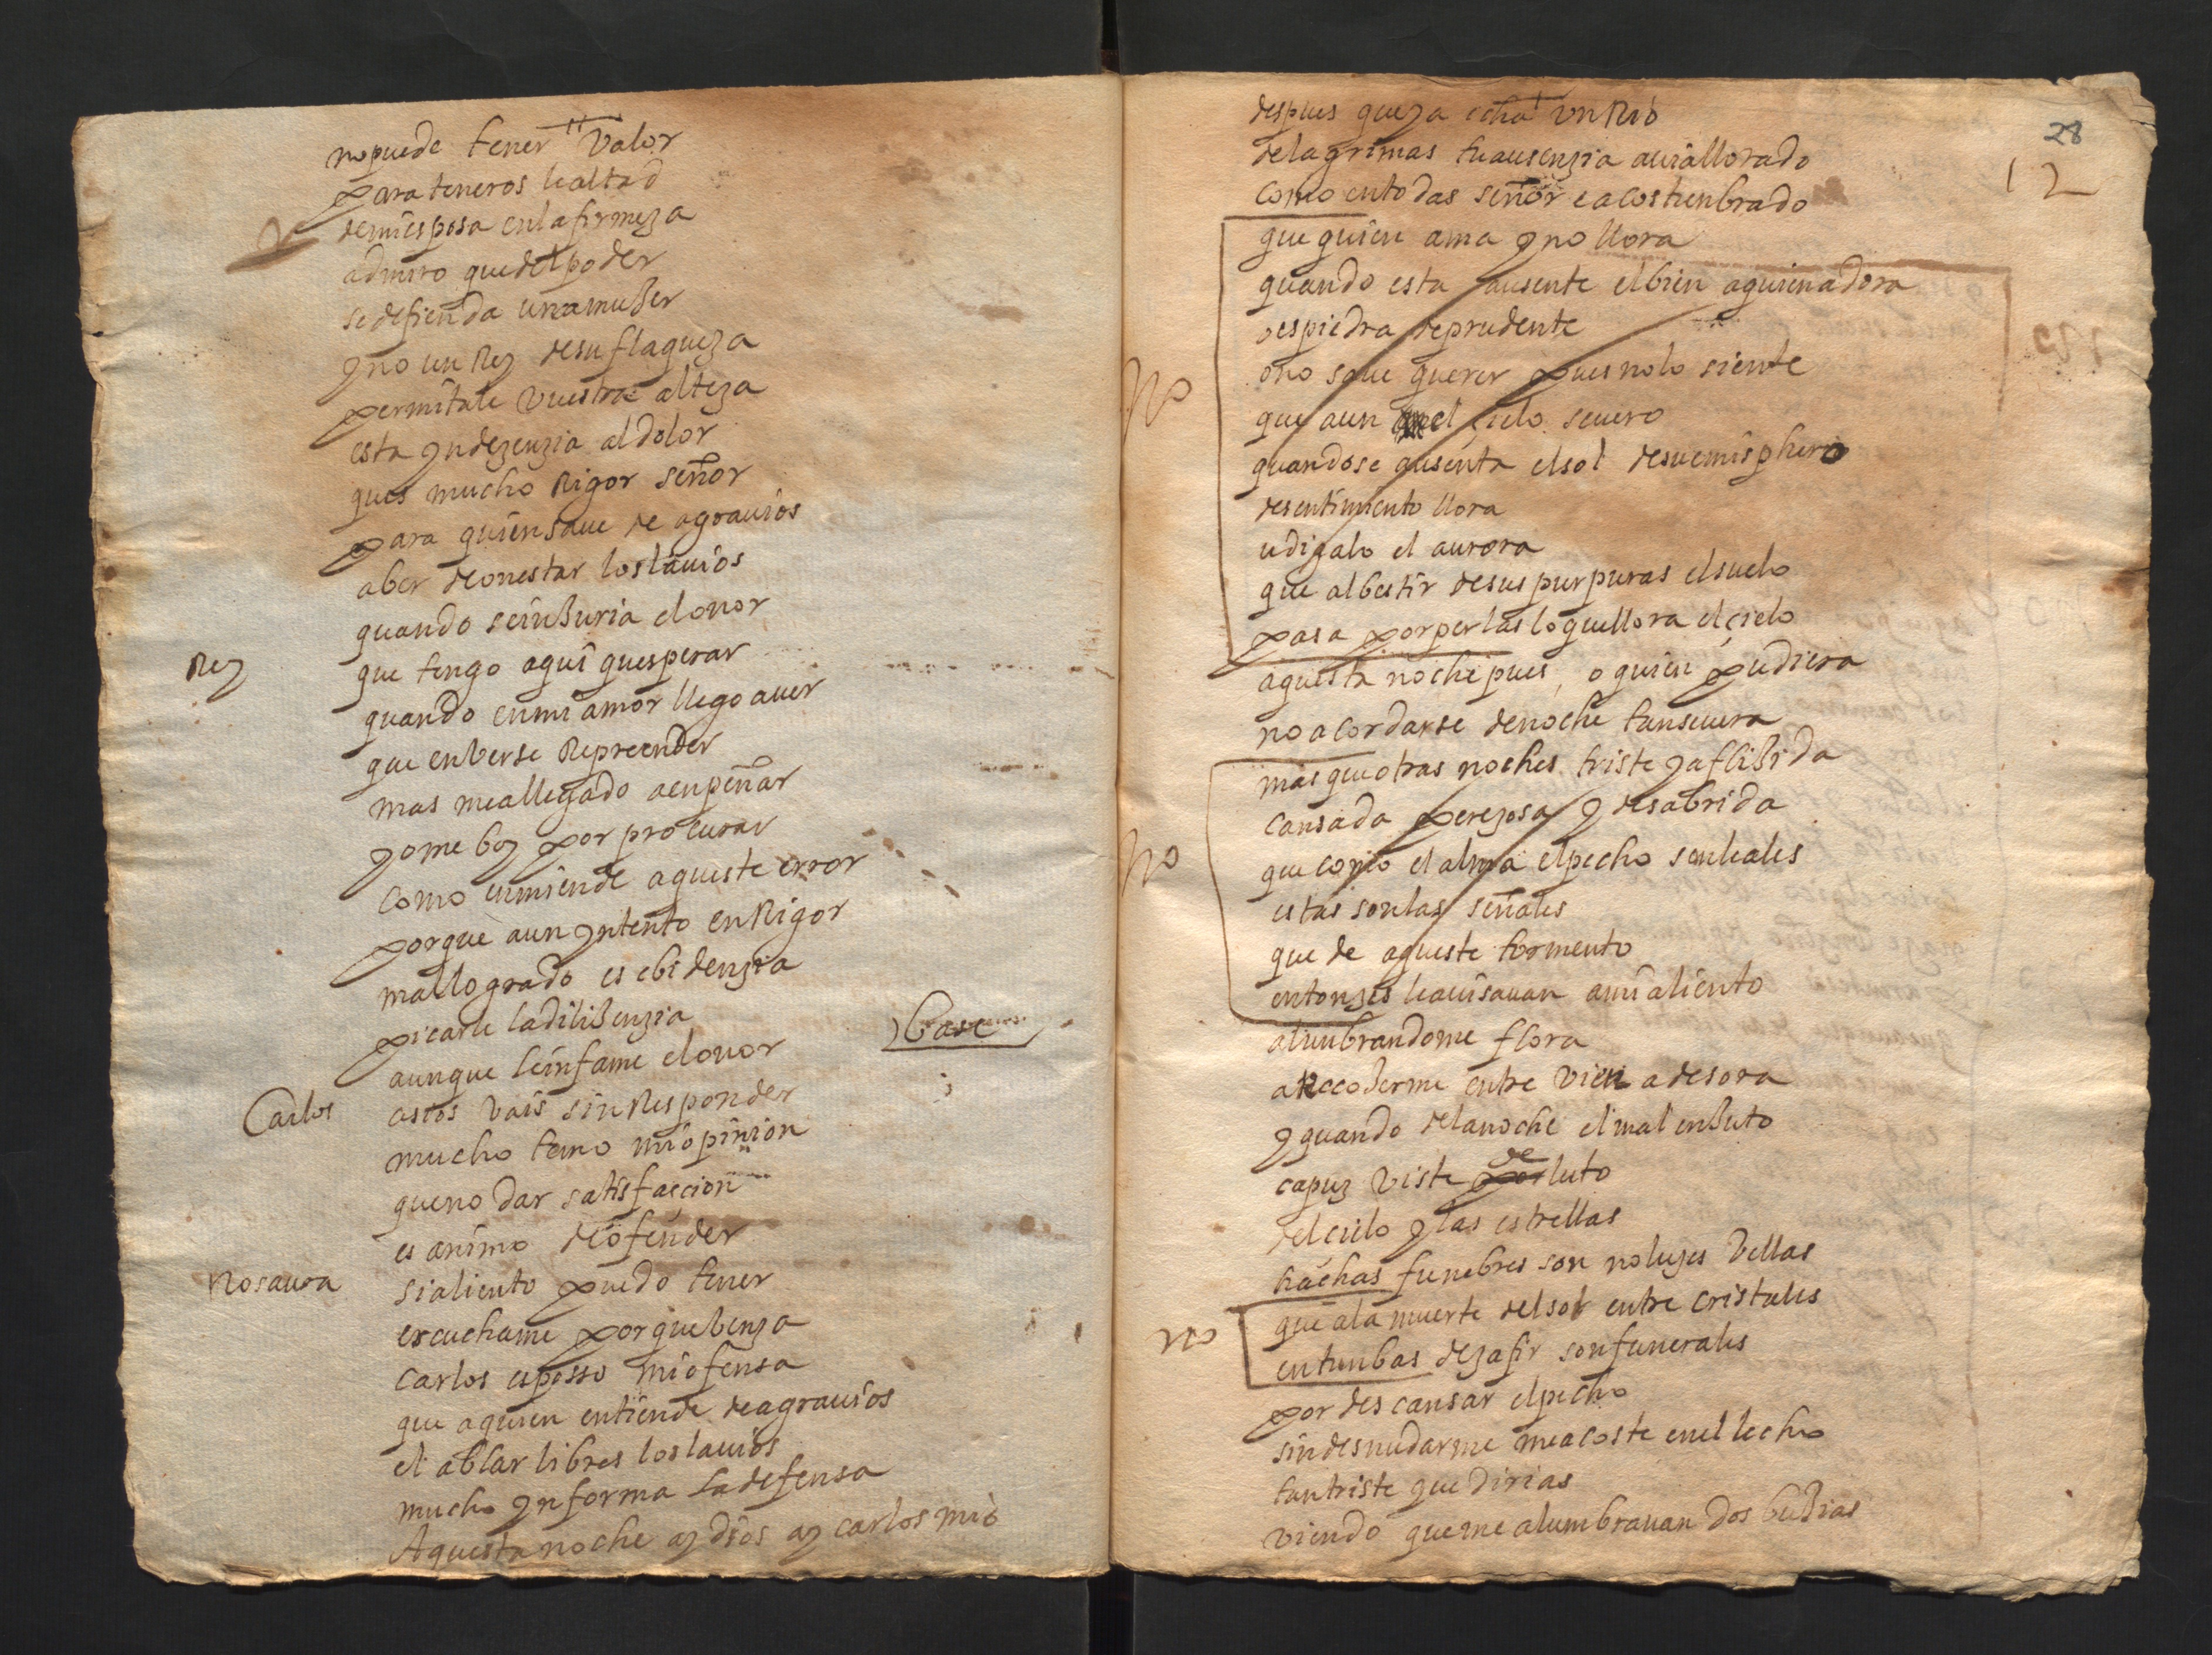 no puede tener valor
para teneros lealtad
de mi esposa en la firmeza
admiro que del poder
se defienda una muBer
y no un Rey de su flaqueza
permitale vuestra alteza
esta yndezenzia al dolor
ques mucho Rigor señor
para quien saue de agrauios
aber deonestar los lauios
quando se inBuria el onor
Rey que tengo aqui quesperar
quando en mi amor llego a uer
que en berse Repreender
mas me a llegado a enpeñar
yo me boy por procurar
como enmiende aqueste error
porque a un yntento en Rigor
mal logrado es ebidenzia
picarle la diliBenzia
aunque le infame el onor base
Carlos asi os vais sin Responder
mucho temo mi opinion
que no dar satisfaçion
es animo de ofender
Rosaura si aliento puedo tener
escuchame por que benza
Carlos esposso mi ofensa
que a quien entiende de agrauios
el ablar libres los lauios
mucho ynforma la defensa
Aquesta noche ay dios ay carlos mio
28
12
despues que ya echa un Rio
de lagrimas tu ausenzia auia llorado
como en todas señor e acostunbrado
que quien ama y no llora
quando esta ausente el bien a quien adora
o es piedra de prudente
no o no saue querer pues no lo siente
que aun el çielo seuero
quando se ausenta el sol de su emisphero
de sentimiento llora
u digalo el aurora
que al bestir de sus purpuras el suelo
pasa por perlas lo que llora el çielo
aquesta noche pues, o quien pudiera
no acordarse de noche tan seuera
mas que otras noches triste y afliBida
cansada perezosa y desabrida
no que como el alma el pecho son leales
estas son las señales
que de aqueste tormento
entonzes le auisauan a mi aliento
alunbrandome flora
a RecoBerme entre vien a desora
y quando de la noche el mal enButo
capuz viste por de luto
el cielo y las estrellas
háchas funebres son no luzes vellas
no que a la muerte del sol entre cristales
en tunbas de zafir son funerales
por descansar el pecho
sin desnudarme me acoste en el lecho
tan triste que dirias
viendo que me alumbrauan dos buBias